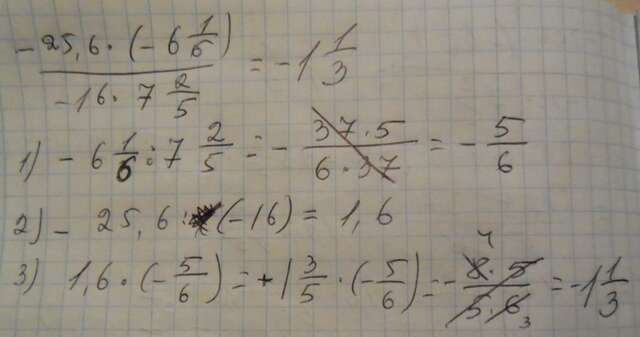 (-25,6 · (-6 1/6)) / (-16 · 7 2/5) = -1 1/3
1) -6 1/6 : 7 2/5 = - (37 · 5)/(6 · 37) = - 5/6
2) - 25,6 : (-16) = 1,6
3) 1,6 · (- 5/6) = + 1 3/5 · (- 5/6) = - (8 4 · 5)/(5 · 6 3) = -1 1/3